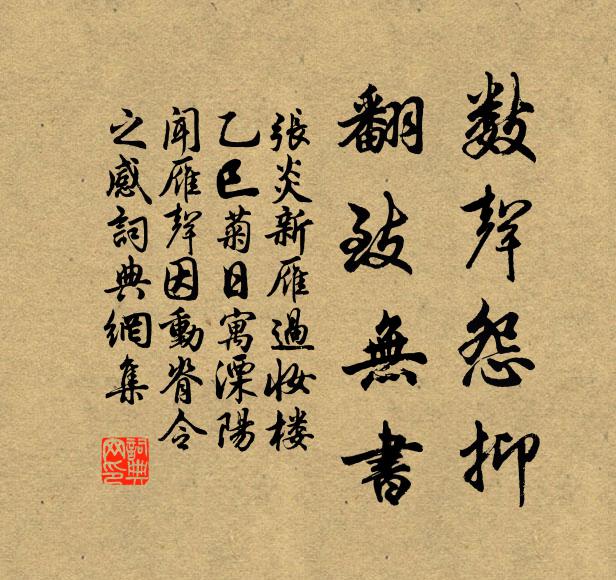 数聲怨抑
翻致無書
張炎新雁過妆楼
乙巳菊日寓溧陽
聞雁聲因動脊令
之感詞典網集
詞典
网印